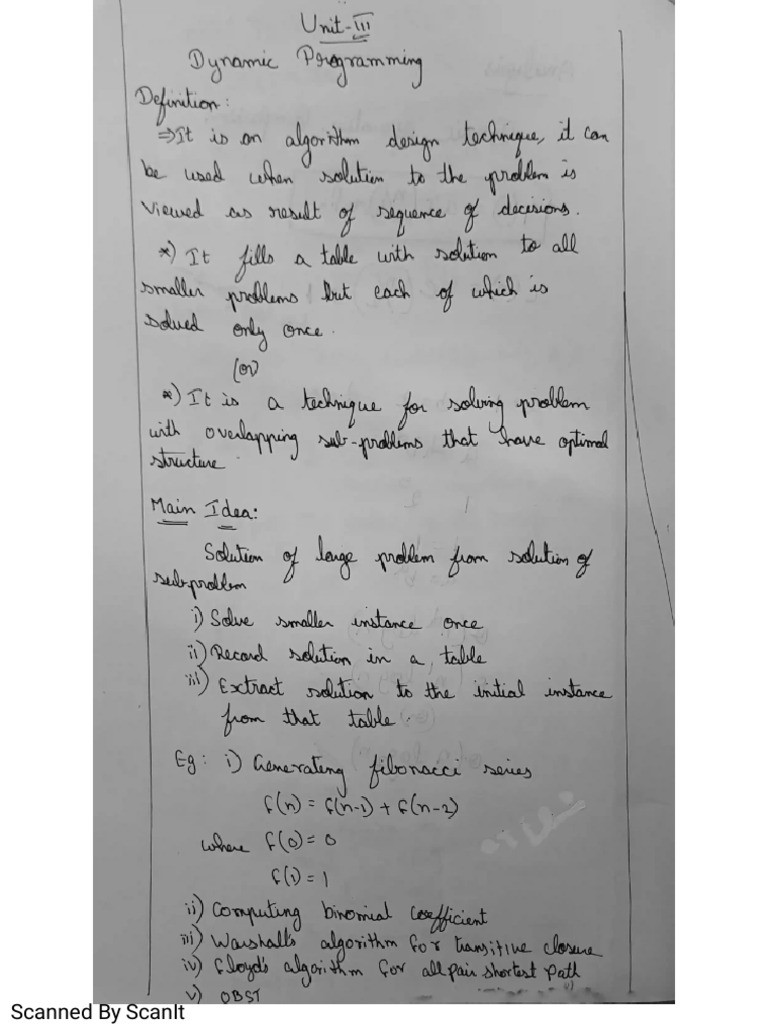 Unit-III
Dynamic Programming
Definition:
⇒It is an algorithm design technique, it can
be used when solution to the problem is
viewed as result of sequence of decisions.
*) It fills a table with solution to all
smaller problems but each of which is
solved only once.
(or)
*) It is a technique for solving problem
with overlapping sub-problems that have optimal
structure.
Main Idea:
Solution of large problem from solution of
subproblem
i) Solve smaller instance once
ii) Record solution in a table
iii) Extract solution to the initial instance
from that table.
Eg: i) Generateng fibonacci series
f(n) = f(n-1) + f(n-2)
where f(0) = 0
f(1) = 1
ii) Computing binomial coefficient
iii) Warshall's algorithm for transitive closure
iv) Floyd's algorithm for all pair shortest path
v) OBST
Scanned By ScanIt